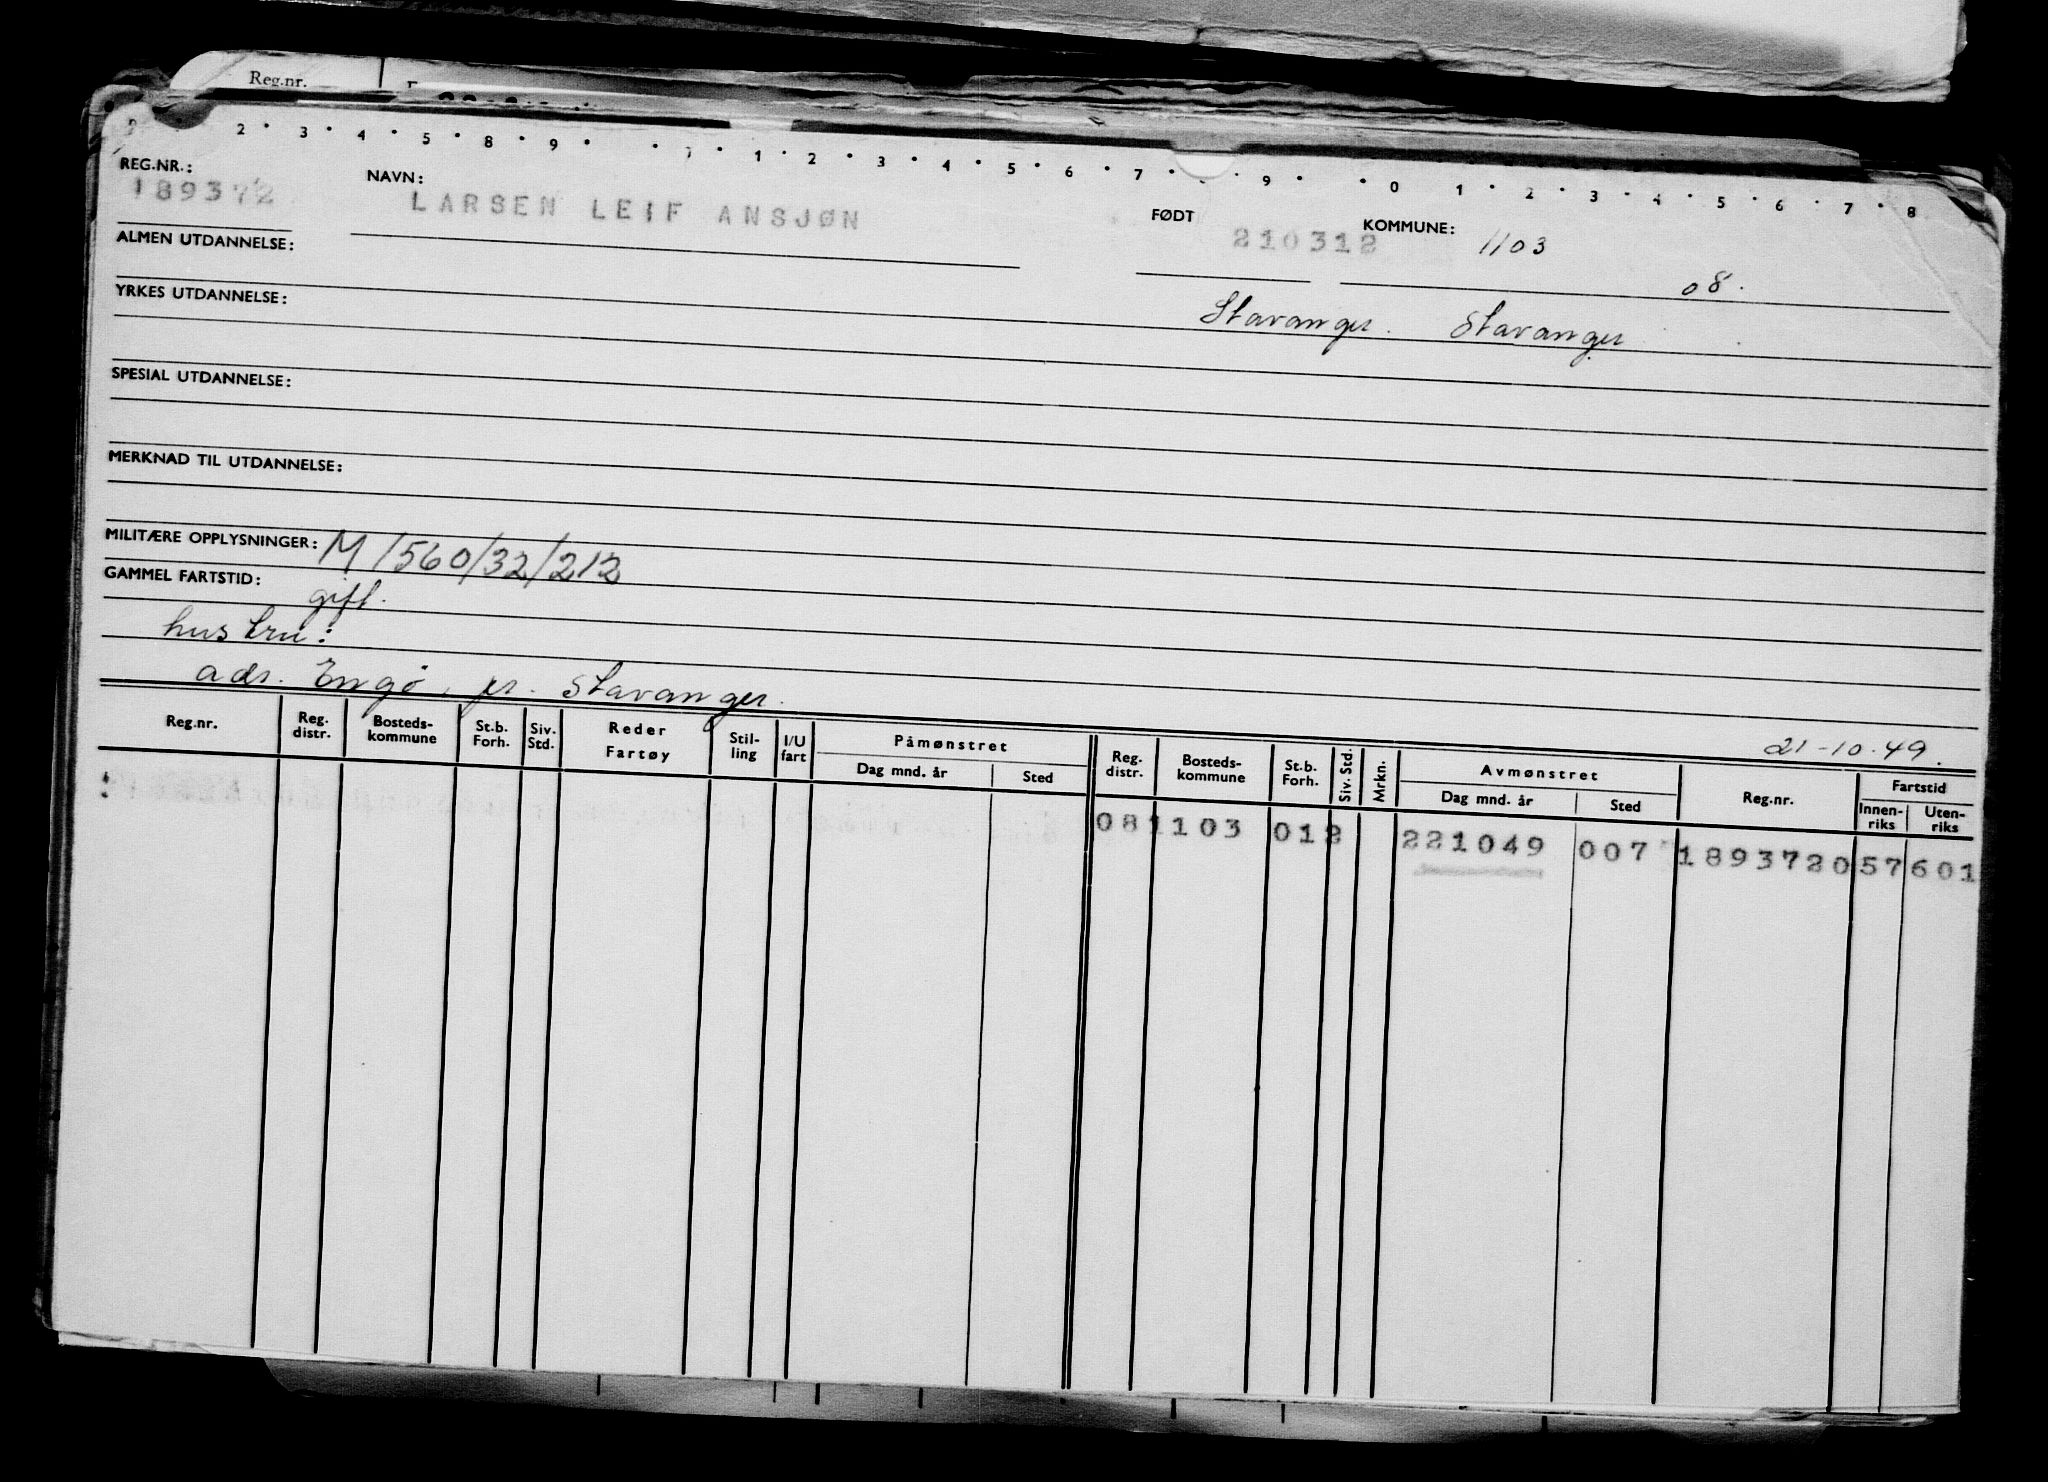 Reg.nr.
2 3 4 5 8 9 1 1 2 3 4 5 6 7 9 0 1 2 3 4 5 6 7 8
REG.NR.: NAVN: FØDT KOMMUNE:
189372 LARSEN LEIF ANSJØN 210312 1103
ALMEN UTDANNELSE:
08.
YRKES UTDANNELSE: Stavanger. Stavanger
SPESIAL UTDANNELSE:
MERKNAD TIL UTDANNELSE:
MILITÆRE OPPLYSNINGER: M/560/32/212
GAMMEL FARTSTID: gift.
hustru:
adr. Engø, pr. Stavanger.
21-10.49.
Reg.nr. Reg. distr. Bosteds-kommune St.b. Forh. Siv. Std. Reder Fartøy Stil-ling I/U fart Påmønstret Dag mnd. år Sted Reg. distr. Bosteds-kommune St.b. Forh. Siv. Std. Mrkn. Avmønstret Dag mnd. år Sted Reg.nr. Fartstid Innen-riks Uten-riks
08 1103 01 2 221049 007 1893720 57 601